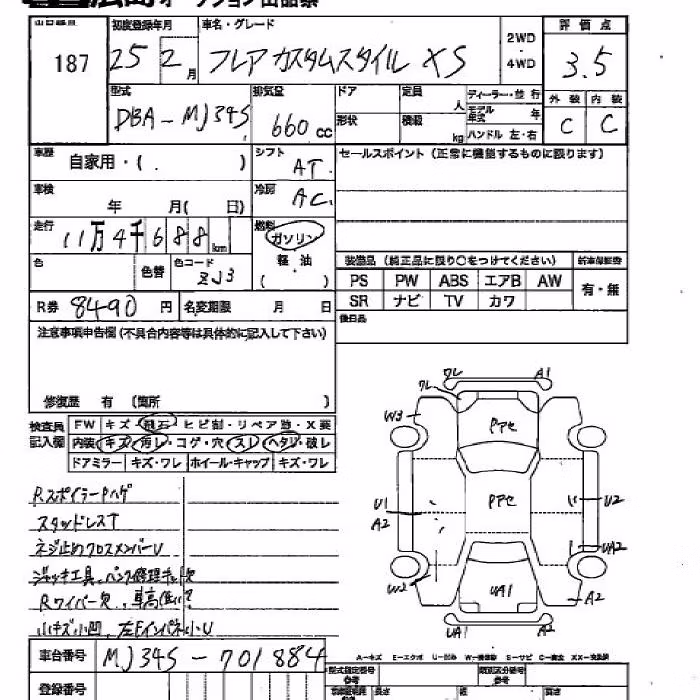 出品番号 初度登録年月 車名・グレード 2WD 評価点
187 25 2月 フレア カスタムスタイル XS ・ 3.5
4WD
型式 排気量 ドア 定員 人 ディーラー・並行 外装 内装
DBA-MJ34S 660cc 形状 積載 kg モデル年式 年 C C
ハンドル 左・右
車歴 自家用・( ) シフト AT. セールスポイント (正常に機能するものに限ります)
車検 年 月( 日) 冷房 AC.
走行 11万4千688km 燃料 ガソリン
色 色替 色コード ZJ3 軽油 ( )
装備品 (純正品に限り○をつけてください) 新車保証書
PS PW ABS エアB AW 有・無
SR ナビ TV カワ
R券 8490円 名変期限 月 日 後日品
注意事項申告欄 (不具合内容等は具体的に記入して下さい)
修復歴 有 (箇所 )
検査員記入欄 FW キズ・飛石・ヒビ割・リペア跡・X要
内装・キズ・汚レ・コゲ・穴・スレ・ヘタリ・破レ
ドアミラー キズ・ワレ ホイール・キャップ キズ・ワレ
Rスポイラーハゲ
スタッドレス
ネジ止めクロスメンバーU
ジャッキ工具、パンク修理キット欠
Rワイパー欠、車高低い?
小キズ小凹、左Fインパネ小U
ワレ A1
ワレ
W3 Pアセ
U1 Pアセ U2
A2
UA2
W2 UA1 A2
UA1
車台番号 MJ34S-701884
A-キズ E-エクボ U-凹み W-補修跡 S-サビ C-腐食 XX-交換済
登録番号 型式指定番号 参考 類別区分番号 参考
長さ 幅 高さ